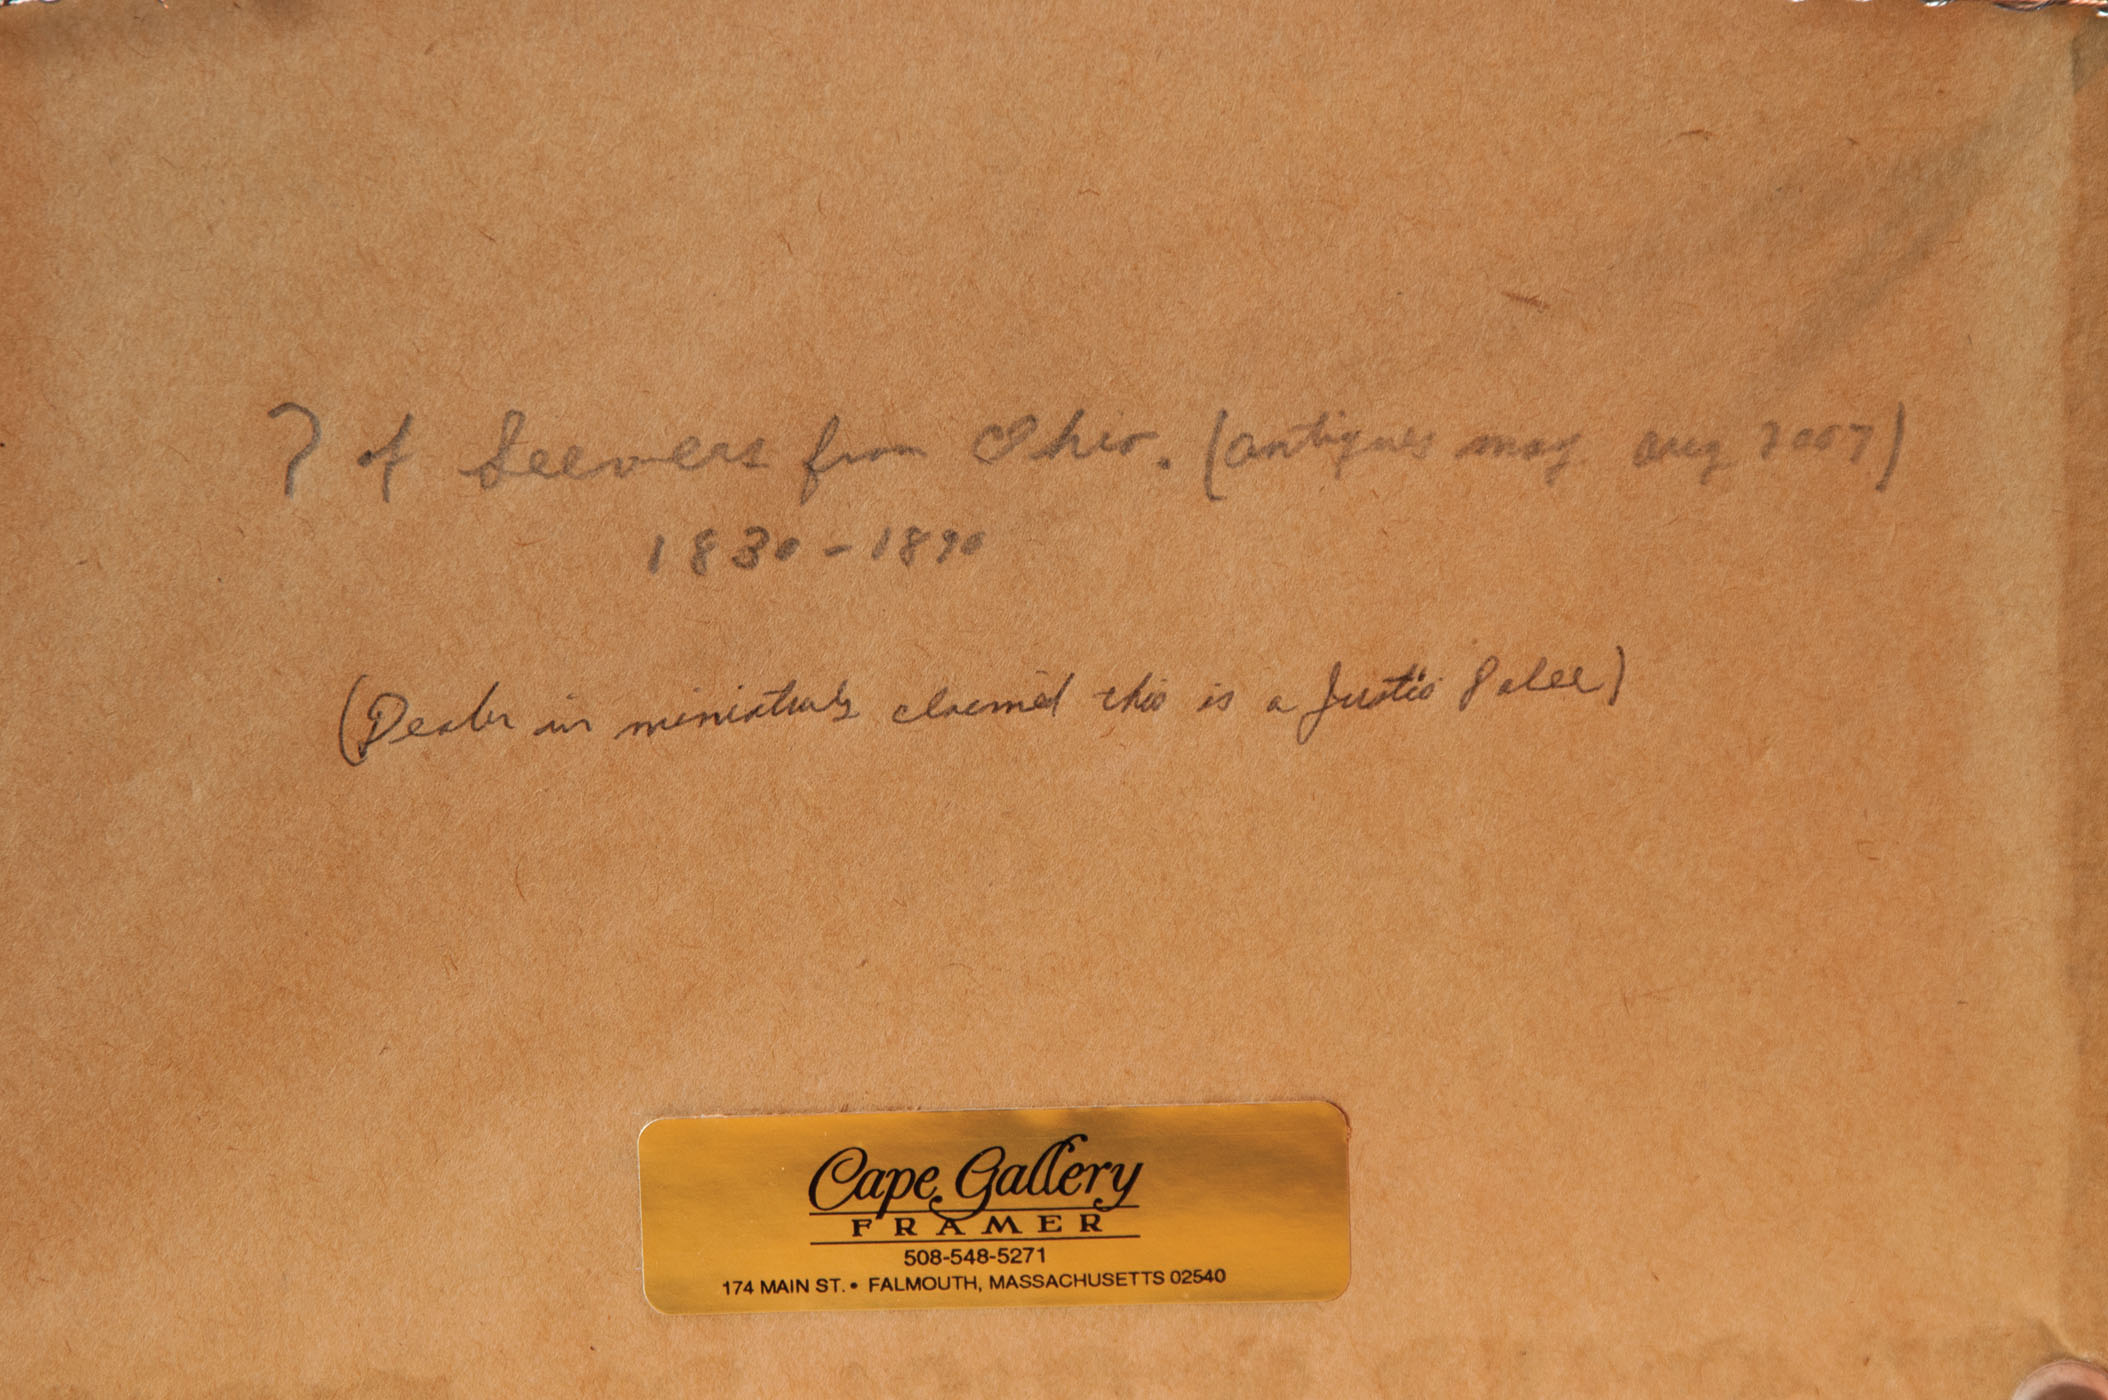 ? of Seevers from Ohio. (Antiques mag Aug 2007)
1830-1890
(Dealer in miniatures claimed this is a Justus)
Cape Gallery
FRAMER
508-548-5271
174 MAIN ST. • FALMOUTH, MASSACHUSETTS 02540